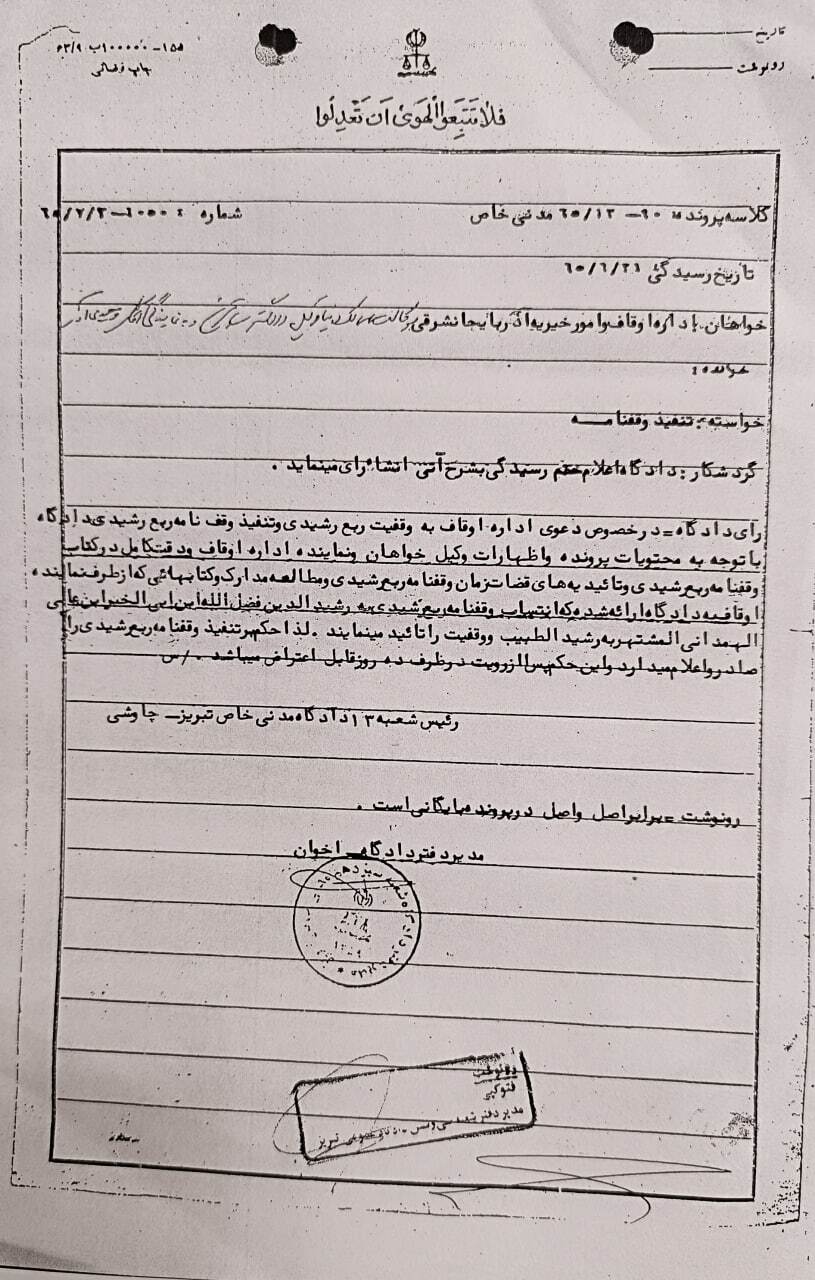 تاریخ
رونوشت
۱۵۵-۱۰۰۰۰۰ب ۶۳/۹
چاپ قضائی
فلا تَتَّبِعوا الْهَوىٰ اَن تَعْدِلُوا
کلاسه پرونده ۹۰-۶۵/۱۳ مدنی خاص شماره
تاریخ رسیدگی ۶۵/۶/۳۱
خواهان. اداره اوقاف و امور خیریه آذربایجانشرقی
خوانده :
خواسته : تنفیذ وقفنامه
گردشکار : دادگاه اعلام ختم رسیدگی بشرح آتی انشاء رای مینماید .
رای دادگاه = درخصوص دعوی اداره اوقاف به وقفیت ربع رشیدی و تنفیذ وقف نامه ربع رشیدی دادگاه
با توجه به محتویات پرونده و اظهارات وکیل خواهان و نماینده اداره اوقاف و دقت کامل در کتاب
وقفنامه ربع رشیدی و تائیدیه های قضات زمان وقفنامه ربع رشیدی و مطالعه مدارک و کتابهائی که از طرف نماینده
اوقاف به دادگاه ارائه شده که انتساب وقفنامه ربع رشیدی به رشید الدین فضل الله ابن ابی الخیر ابن عالی
الهمدانی المشتهر به رشید الطبیب و وقفیت را تائید مینمایند . لذا حکم بر تنفیذ وقفنامه ربع رشیدی را
صادر و اعلام میدارد و این حکم پس از رویت در ظرف ده روز قابل اعتراض میباشد . /س
رئیس شعبه ۱۳ دادگاه مدنی خاص تبریز - چاوشی
رونوشت = برابر اصل واصل در پرونده بایگانی است .
مدیر دفتر دادگاه - اخوان
رونوشت
فتوکپی